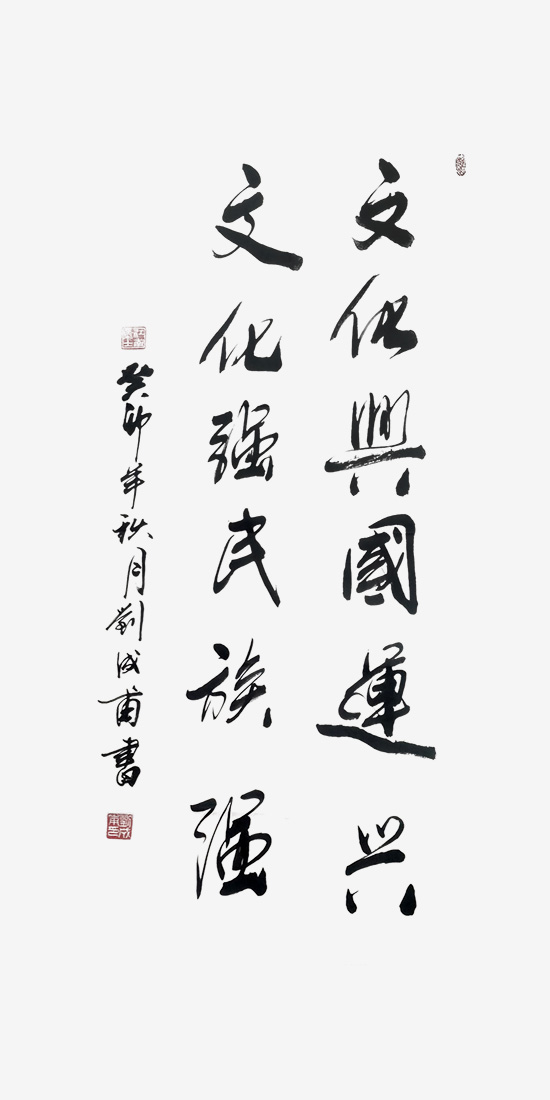 文化興國運兴
文化強民族强
癸卯年秋月劉成甫書